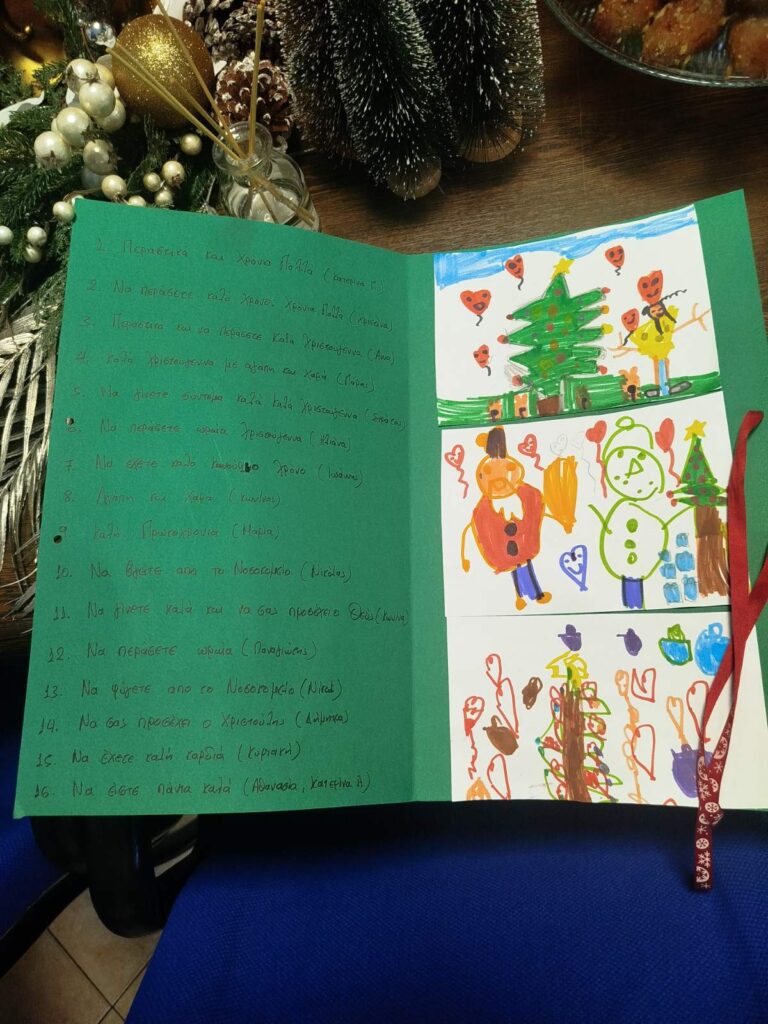 1. Περαστικα και Χρονια Πολλα (Κατερινα Γ.)
2. Να περασετε καλα Χρονια Πολλα (Χριστινα)
3. Περαστικα και να περασετε καλα Χριστουγεννα (Αννα)
4. Καλα Χριστουγεννα με αγαπη και χαρα (Μαρια)
5. Να γινετε συντομα καλα καλα Χριστουγεννα (Στρατος)
6. Να περασετε ωραια Χριστουγεννα (Ηλιανα)
7. Να εχετε καλο Χρονο (Ιωαννα)
8. Αγαπη και χαρα (Κων/νος)
9. Καλη Πρωτοχρονια (Μαρια)
10. Να βγειτε απο το Νοσοκομειο (Νικολας)
11. Να γινετε καλα και να σας προσεχει ο Θεος (Κων/να)
12. Να περασετε ωραια (Παναγιωτης)
13. Να φυγετε απο το Νοσοκομειο (Νικολ)
14. Να σας προσεχει ο Χριστουλης (Δημητρα)
15. Να εχετε καλη καρδια (Κυριακη)
16. Να ειστε παντα καλα (Αθανασια, Κατερινα Α)